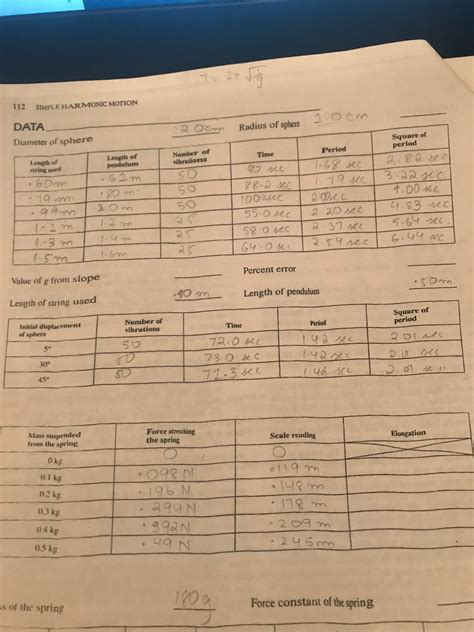 T = 2π √
112 SIMPLE HARMONIC MOTION
DATA
Diameter of sphere 2.0cm Radius of sphere 1.0cm
Length of string used Length of pendulum Number of vibrations Time Period Square of period
.60m 50 sec 1.68 sec 2.82 sec
.79m .80m 50 88.2 sec 1.79 sec 3.22 sec
.99m 50 100 sec sec 4.00 sec
1.2m 25 55.0 sec 2.20 sec 4.83 sec
1.3m 1.4m 25 58.0 sec 2.37 sec 5.64 sec
1.5m 1.6m 25 64.0 sec 2.54 sec 6.44 sec
Value of g from slope Percent error
Length of string used .40 m Length of pendulum .50m
Initial displacement of sphere Number of vibrations Time Period Square of period
5° 50 72.0 sec 1.42 sec 2.01 sec
30° 50 73.0 sec 1.42 sec sec
45° 50 71.3 sec sec 2.01 sec
Mass suspended from the spring Force stretching the spring Scale reading Elongation
0 kg 0 0
0.1 kg .098 N .119 m
0.2 kg .196 N .148 m
0.3 kg .294 N .178 m
0.4 kg .392 N .209 m
0.5 kg .49 N .245m
of the spring 180g Force constant of the spring